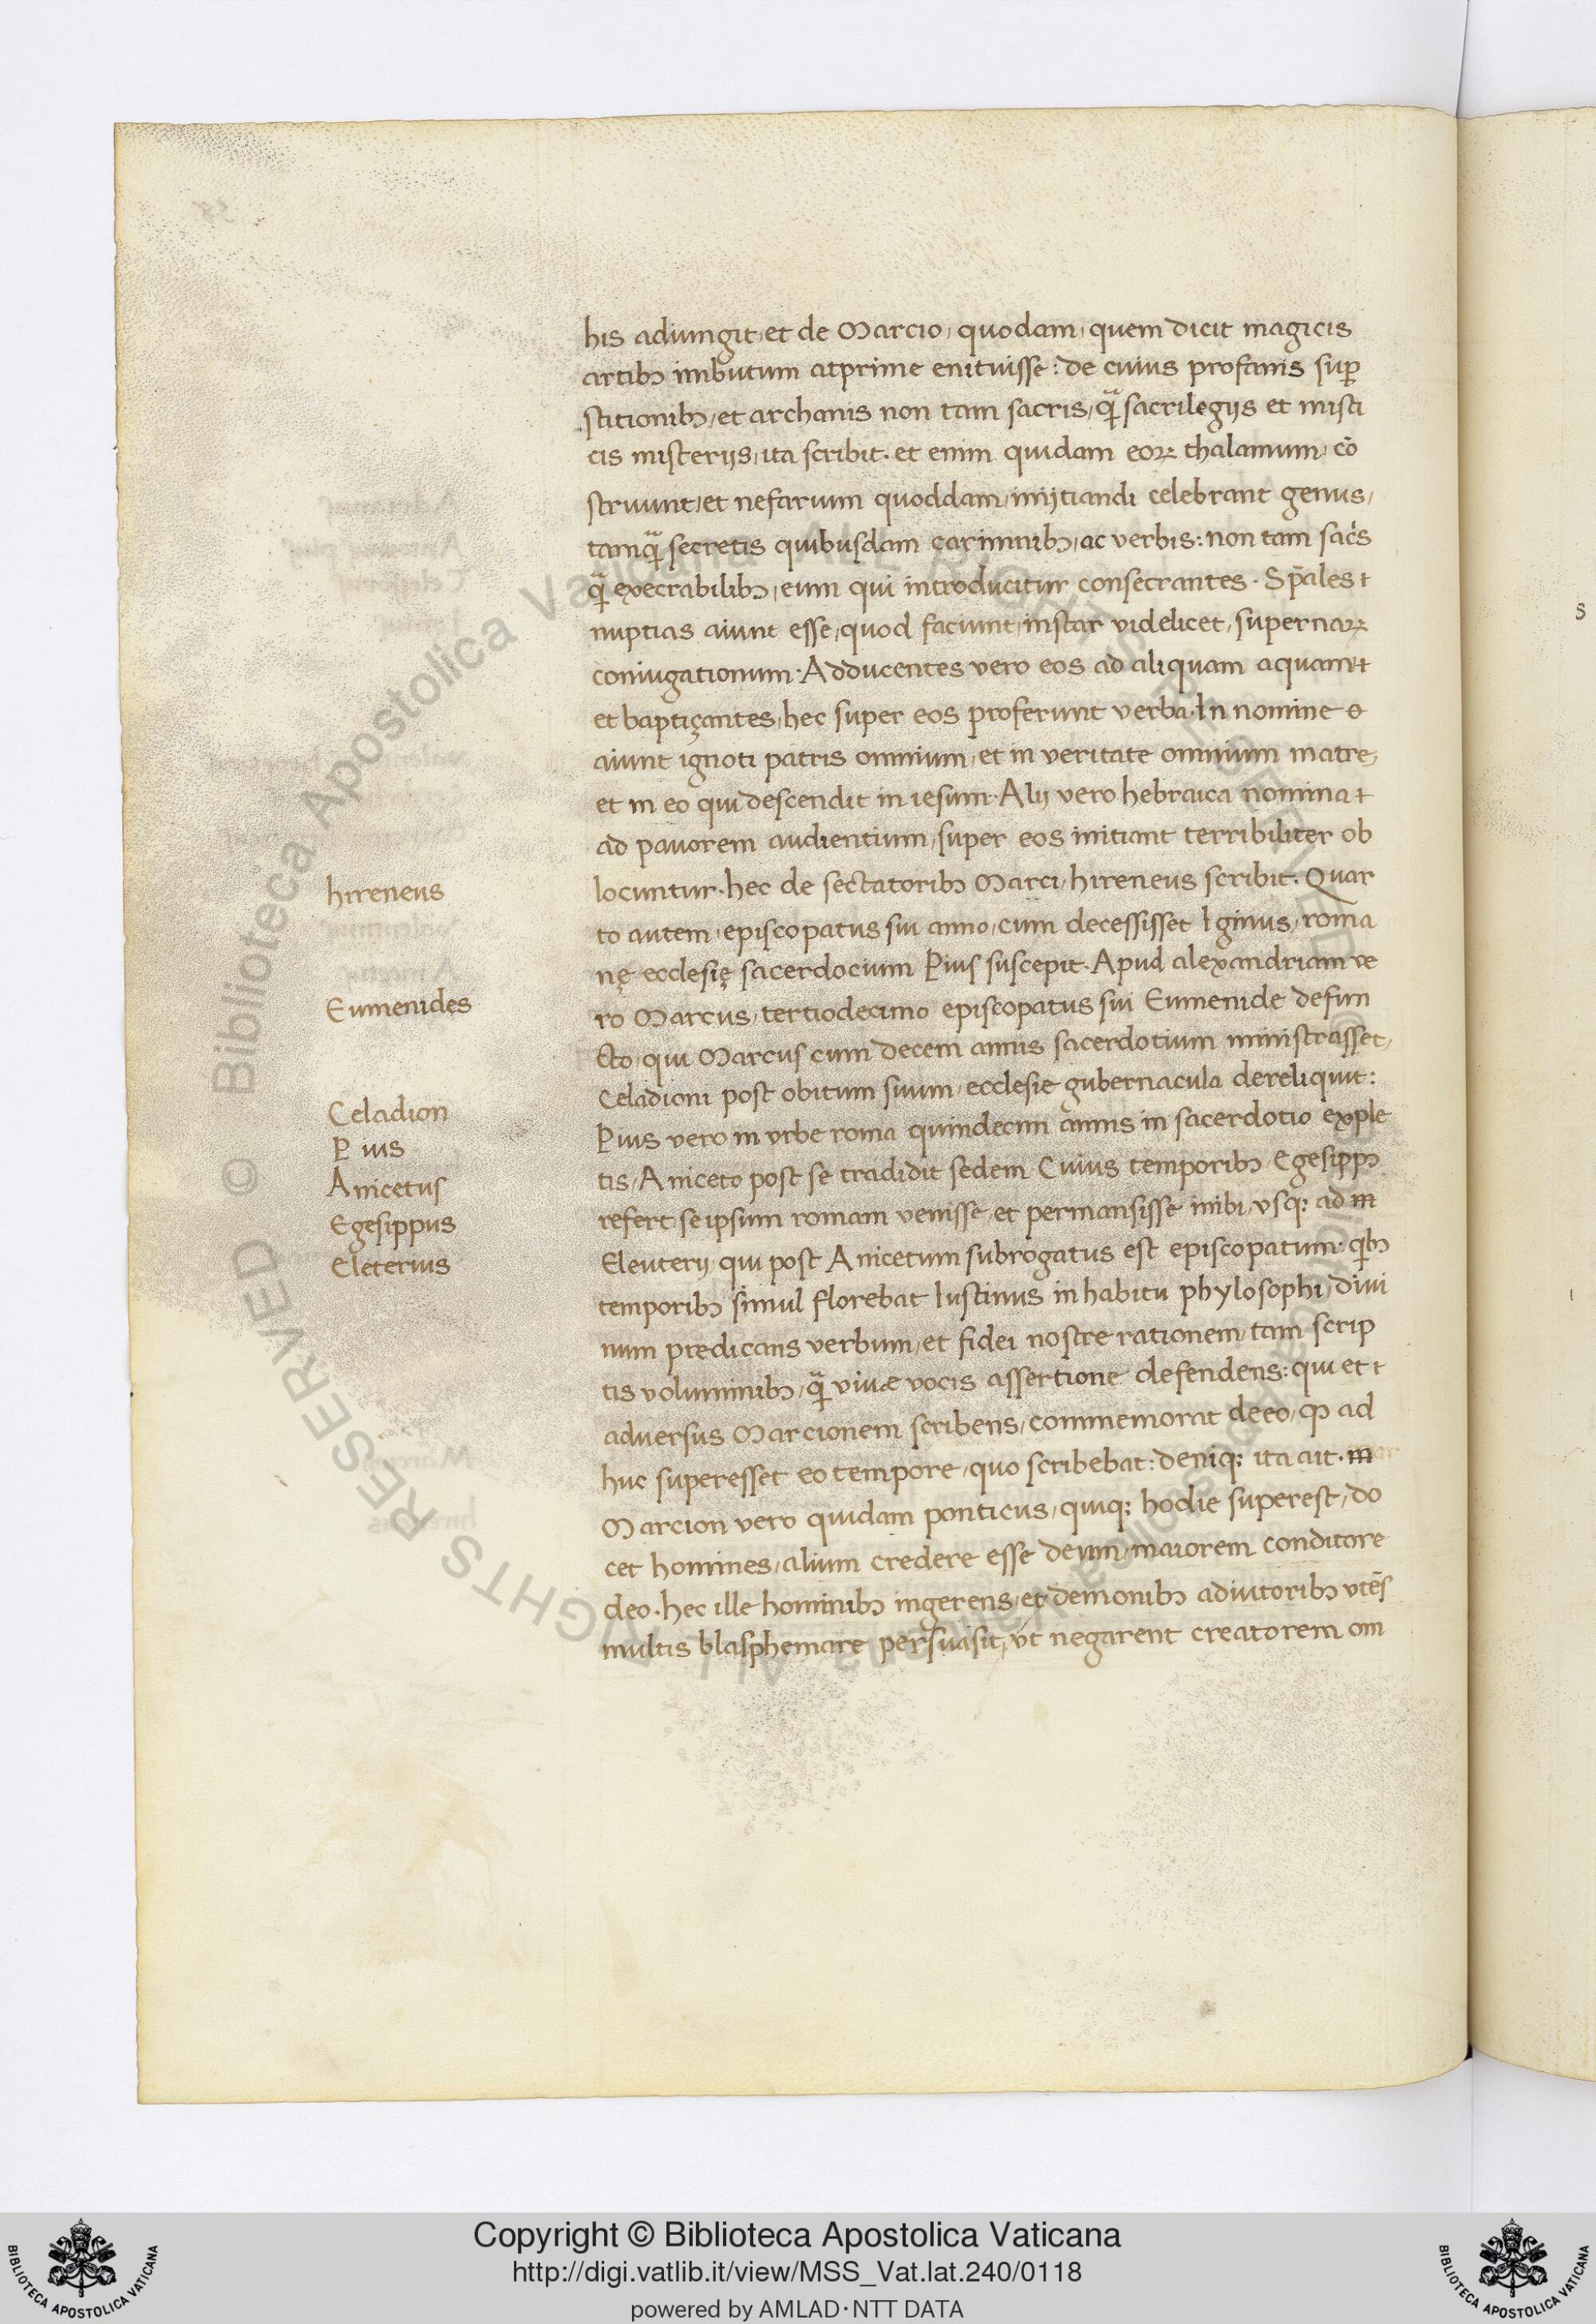 his adiungit, et de Marcio, quodam, quem dicit magicis
artibꝫ imbutum atprime enituisse: de cuius profanis suꝑ
stitionibꝫ, et archanis non tam sacris, q̃ sacrilegijs et misti
cis misterijs, ita scribit. et enim quidam eoꝝ thalamum, cō
struunt, et nefarium quoddam, inijtiandi celebrant genus,
tamq̃ secretis quibusdam carminibꝫ, ac verbis: non tam sac̓s
q̃ execrabilibꝫ, eum qui introducitur consecrantes. Sp̄ales
nuptias aiunt esse, quod faciunt, instar videlicet, supernaꝝ
coniugationum. Adducentes vero eos ad aliquam aquam
et baptiçantes, hec super eos proferunt verba. In nomine
aiunt ignoti patris omnium, et in veritate omnium matre,
et in eo qui descendit in iesum. Alij vero hebraica nomina
ad pauorem audientium, super eos initiant terribiliter ob
hireneus
locuntur. hec de sectatoribꝫ Marci, hireneus scribit. Quar
to autem, episcopatus sui anno, cum decessisset Iginus, roma
nę ecclesię sacerdocium Pius suscepit. Apud alexandriam ve
Eumenides
ro Marcus, tertiodecimo episcopatus sui Eumenide defun
cto, qui Marcus cum decem annis sacerdotium ministrasset,
Celadioni post obitum suum, ecclesie gubernacula dereliquit:
Celadion
Pius vero in vrbe roma quindecim annis in sacerdotio exple
Pius
tis, Aniceto post se tradidit sedem Cuius temporibꝫ Egesippꝫ
Anicetus
refert, se ipsum romam venisse, et permansisse inibi, vsqꝫ ad
Egesippus
Eleuterij qui post Anicetum subrogatus est episcopatum: qͥbꝫ
Eleterius
temporibꝫ simul florebat Iustinus in habitu phylosophi, diui
num predicans verbum, et fidei nostre rationem, tam scrip
tis voluminibꝫ, q̃ viuæ vocis assertione defendens: qui et
adversus Marcionem scribens, commemorat de eo, ꝙ ad
huc superesset eo tempore, quo scribebat: deniqꝫ ita ait.
Marcion vero quidam ponticus, quiqꝫ hodie superest, do
cet homines, alium credere esse deum, maiorem conditore
deo. hec ille hominibꝫ ingerens, et demonibꝫ adiutoribꝫ vtēs
multis blasphemare persuasit, vt negarent creatorem om
Copyright © Biblioteca Apostolica Vaticana
http://digi.vatlib.it/view/MSS_Vat.lat.240/0118
powered by AMLAD·NTT DATA